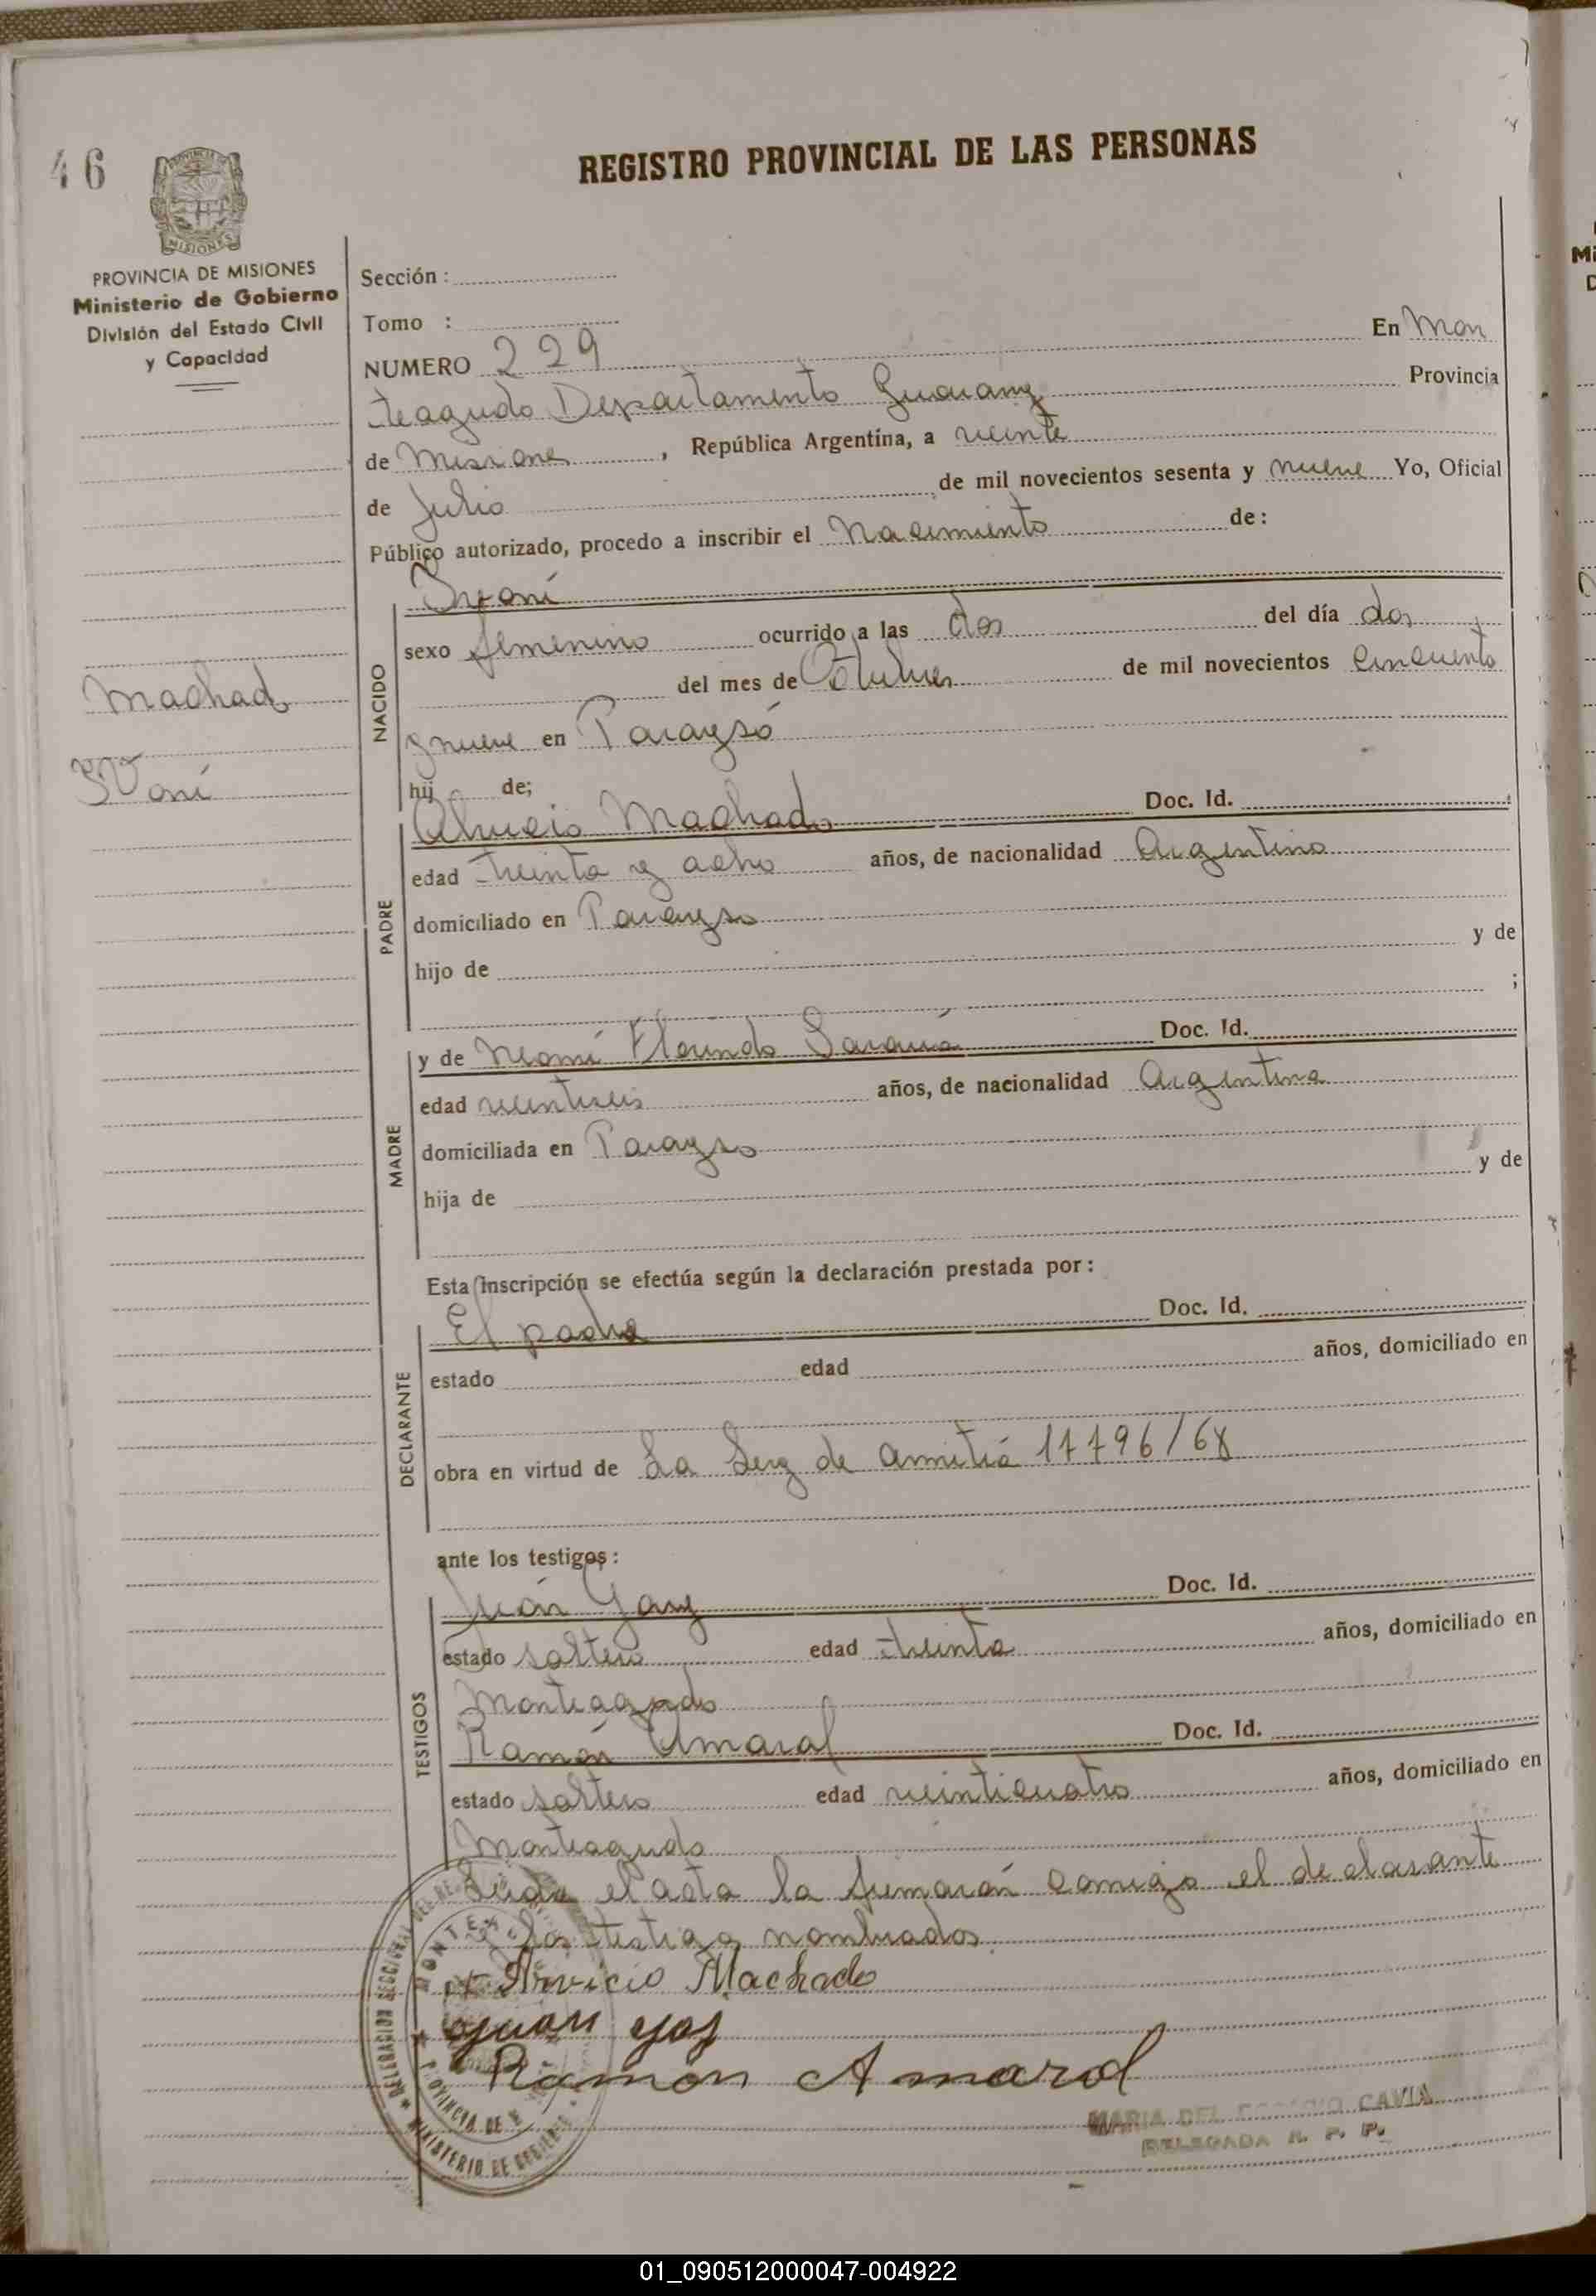 46
REGISTRO PROVINCIAL DE LAS PERSONAS
PROVINCIA DE MISIONES
Ministerio de Gobierno
División del Estado Civil
y Capacidad
Sección :
Tomo :
NUMERO 229 En Mon
teagudo Departamento Guarany Provincia
de Misiones, República Argentina, a veinte
de Julio de mil novecientos sesenta y nueve Yo, Oficial
Público autorizado, procedo a inscribir el Nacimiento de:
Machado
Ivoní
NACIDO
Ivoní
sexo femenino ocurrido a las dos del día dos
del mes de Octubre de mil novecientos cincuenta
y nueve en Parayso
hij de;
PADRE
Machado Doc. Id.
edad treinta y ocho años, de nacionalidad Argentino
domiciliado en Parayso
hijo de y de
;
MADRE
y de Neomí Florinda Doc. Id.
edad veintiseis años, de nacionalidad Argentina
domiciliada en Parayso
hija de y de
Esta inscripción se efectúa según la declaración prestada por:
DECLARANTE
El padre Doc. Id.
estado edad años, domiciliado en
obra en virtud de La Ley de amnitía 17796/68
ante los testigos:
TESTIGOS
Juán Doc. Id.
estado soltero edad treinta años, domiciliado en
Monteagudo
Ramón Amaral Doc. Id.
estado soltero edad veinticuatro años, domiciliado en
Monteagudo
Leida el acta la firmarán comigo el declarante
los testigos nombrados
Machado
Juan
Ramón Amarol
MARIA DEL CAVIA
DELEGADA R. P. P.
DELEGACION SECCIONAL
PROVINCIA DE
MINISTERIO DE GOBIERNO
01_090512000047-004922